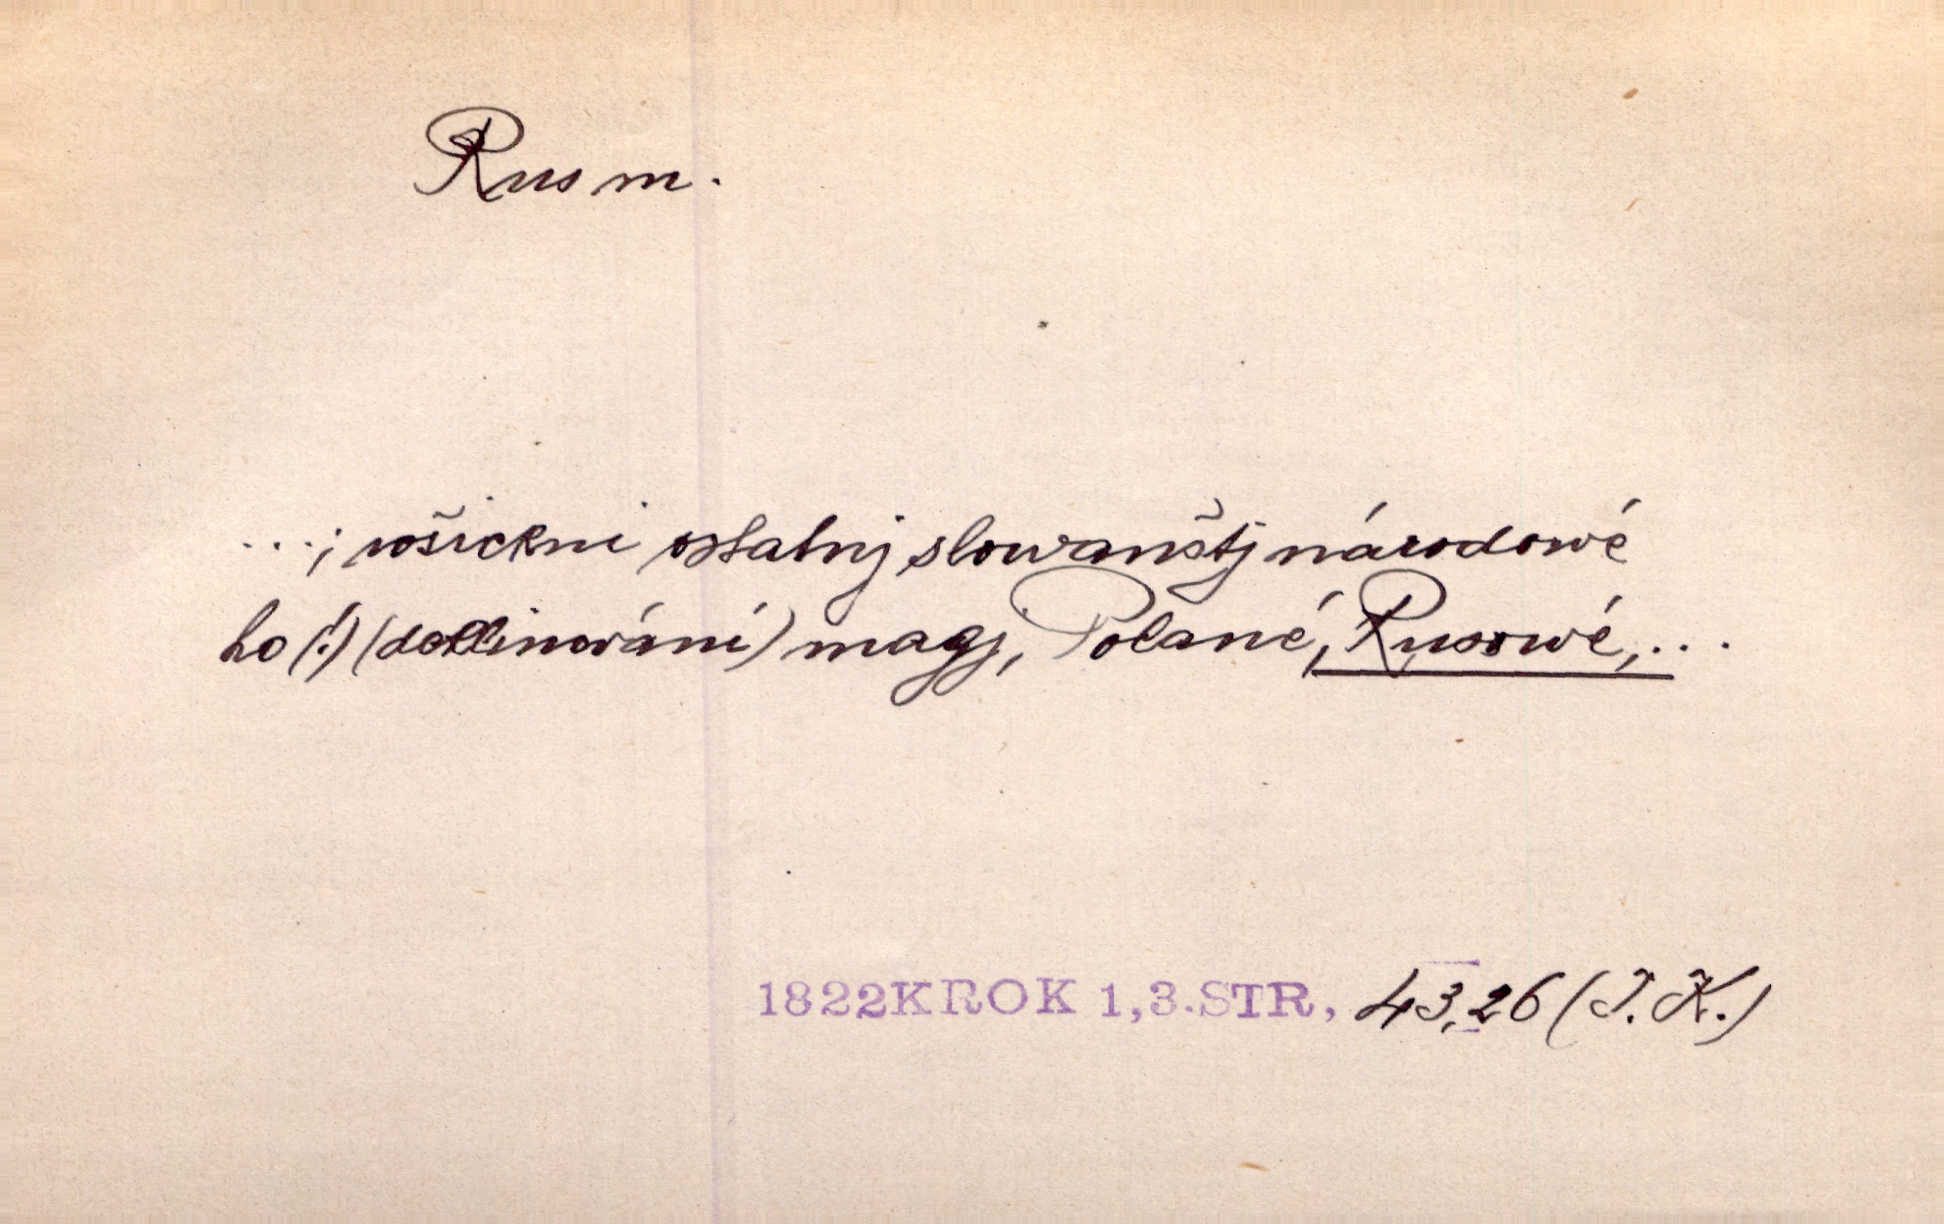 Rus m.
...; wšickni ostatnj slowanštj národowé
ho (!) (deklinování) magj, Polané, Rusowé,...
1822 KROK 1,3.STR, 43,26 (J. K.)